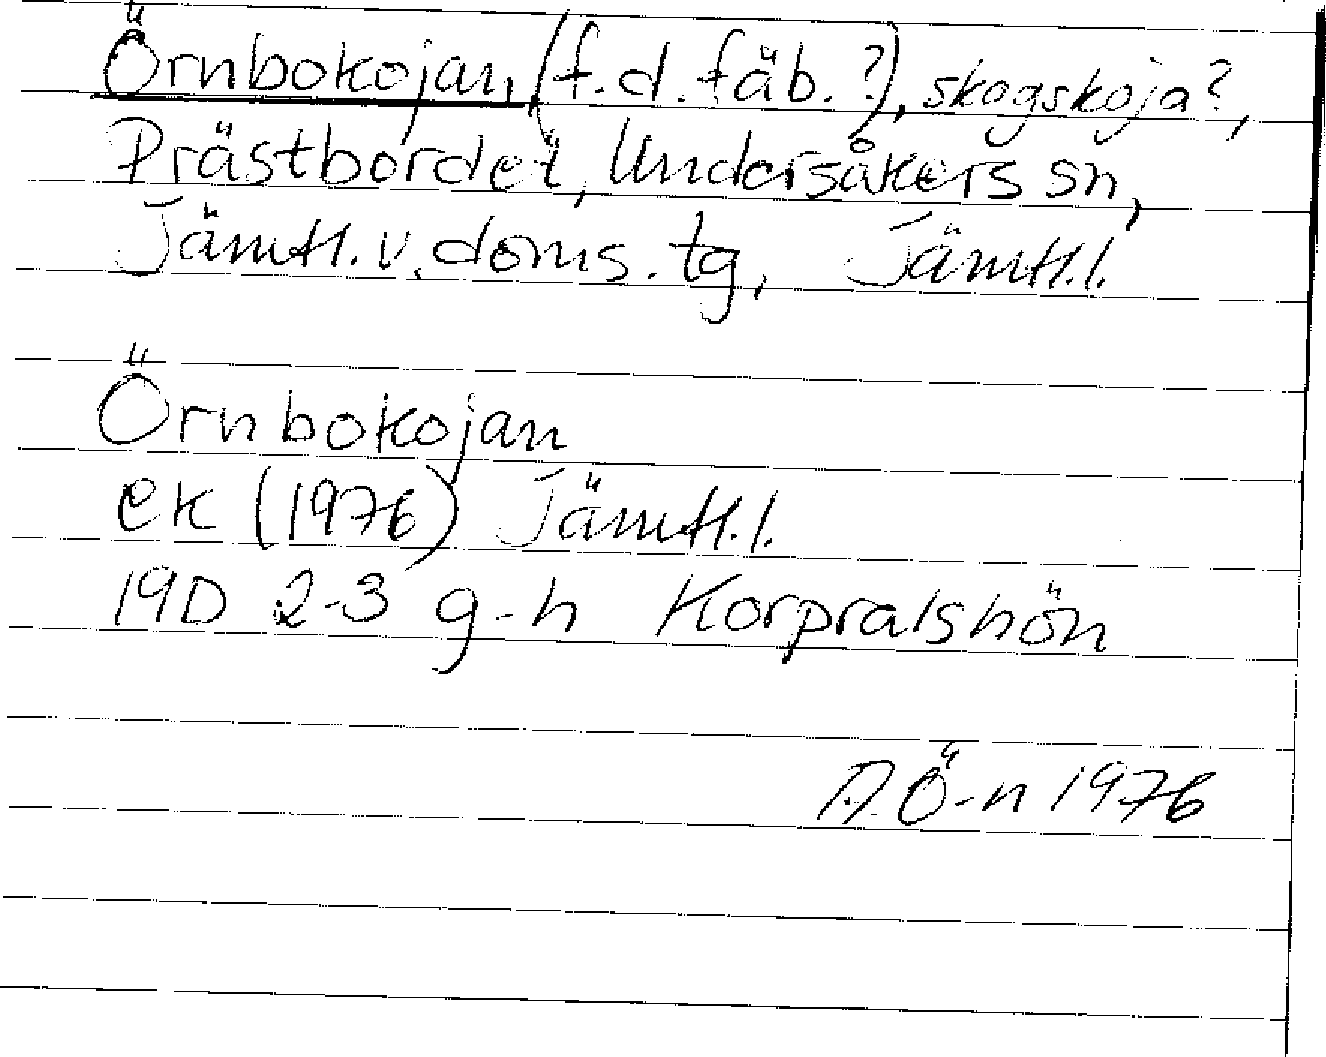 Örnbokojan, (f.d. fäb. ?), skogskoja?,
Prästbordet, Undersåkers sn,
Jämtl. v. doms. tg, Jämtl. l.
Örnbokojan
ek (1976) Jämtl. l.
19D 2-3 g-h Korpralshön
A. Ö-n 1976